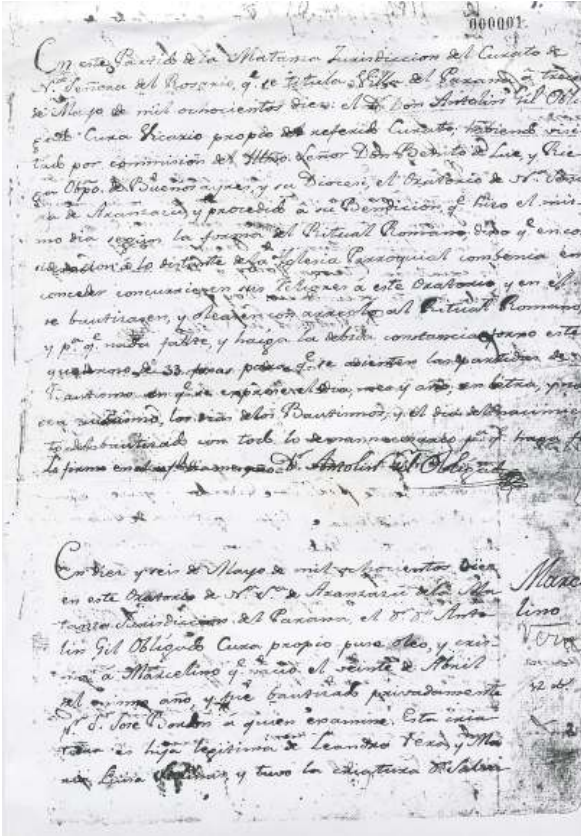 000001
En este Partido de la Matanza Jurisdiccion del Curato de
N.ª Señora del Rosario, q.e se titula Villa del Paraná á trece
de Mayo de mil ochocientos diez: el D.r Don Antolin Gil Obli
Cura Vicario propio del referido Curato, habiendo visi
tado por commision del Señor Don Benito de Lue, y Rie
ga Obpo. de Buenos ayres, y su Diocesi, el Oratorio de N.ª Seño
ra de Aranzazu y procedido á su Bendicion, q.e hizo el mis
mo dia segun la forma del Ritual Romano, dixo q.e en con
sideracion á lo distante de la Iglesia Parroquial combenia en
conceder concurriesen sus feligreses á este Oratorio y en el
se bautizasen, y oleasen con arreglo al Ritual Romano
y p.a q.e nada falte, y haiga la debida constancia formo este
quaderno de 33 foxas para q.e se asienten las partidas de
Bautismo en q.e se exprese el dia, mes y año, en letra, y no
los dias de los Bautismos, y el dia del nacimien
to del bautizado con todo lo demas necesario p.a q.e haga fe
lo firmo D.r Antolin Gil Obligado
En diez y seis de Mayo de mil ochocientos Diez
en este Oratorio de N.ª S.ra de Aranzazú de la Ma
tanza Jurisdiccion del Paraná, el D.r D.n Anto
lin Gil Obligado Cura propio puse oleo, y cris
ma á Marcelino q.e nació el veinte de Abril
del mismo año, y fue bautizado privadamente
p.r D.n José Bordon a quien examiné. Esta cria
tura es hija legitima de Leandro Vera, y Ma
ria Luisa y tuvo la criatura
Marce
lino
Vera